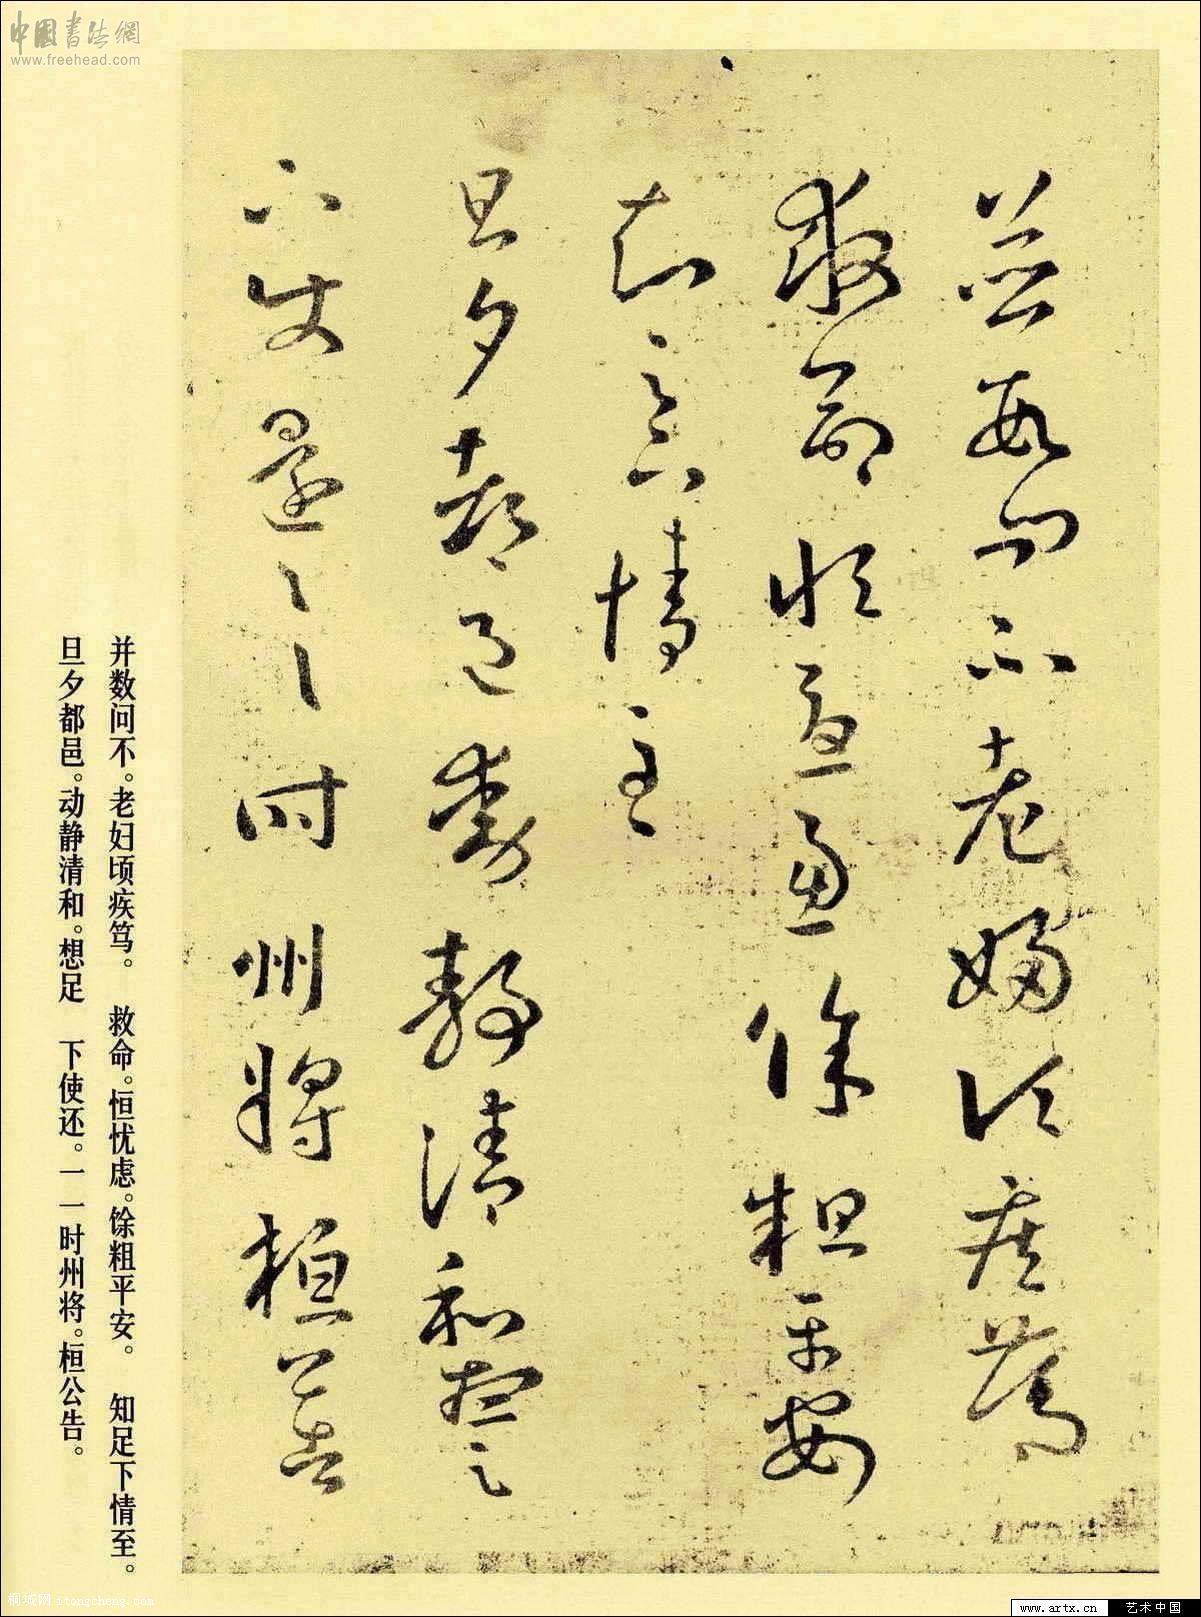 中国书法網
www.freehead.com
並數問不老婦頃疾篤
救命恒憂慮餘粗平安
知足下情至
旦夕都邑動靜清和想足
下使還一一時州將桓公告
并数问不。老妇顷疾笃。 救命。恒忧虑。馀粗平安。 知足下情至。
旦夕都邑。动静清和。想足 下使还。一一时州将。桓公告。
桐城网 itongcheng.com
www.artx.cn 艺术中国